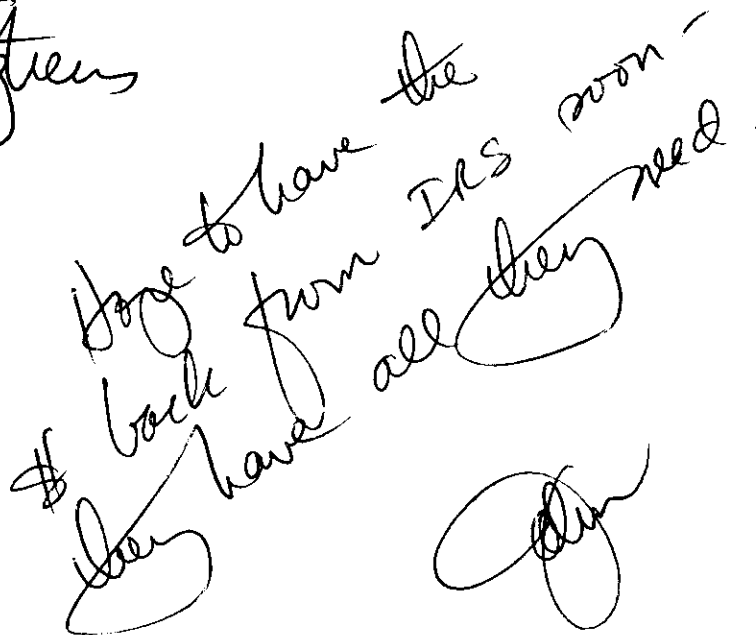 Hope to have the
$ back from IRS soon -
they have all they need.